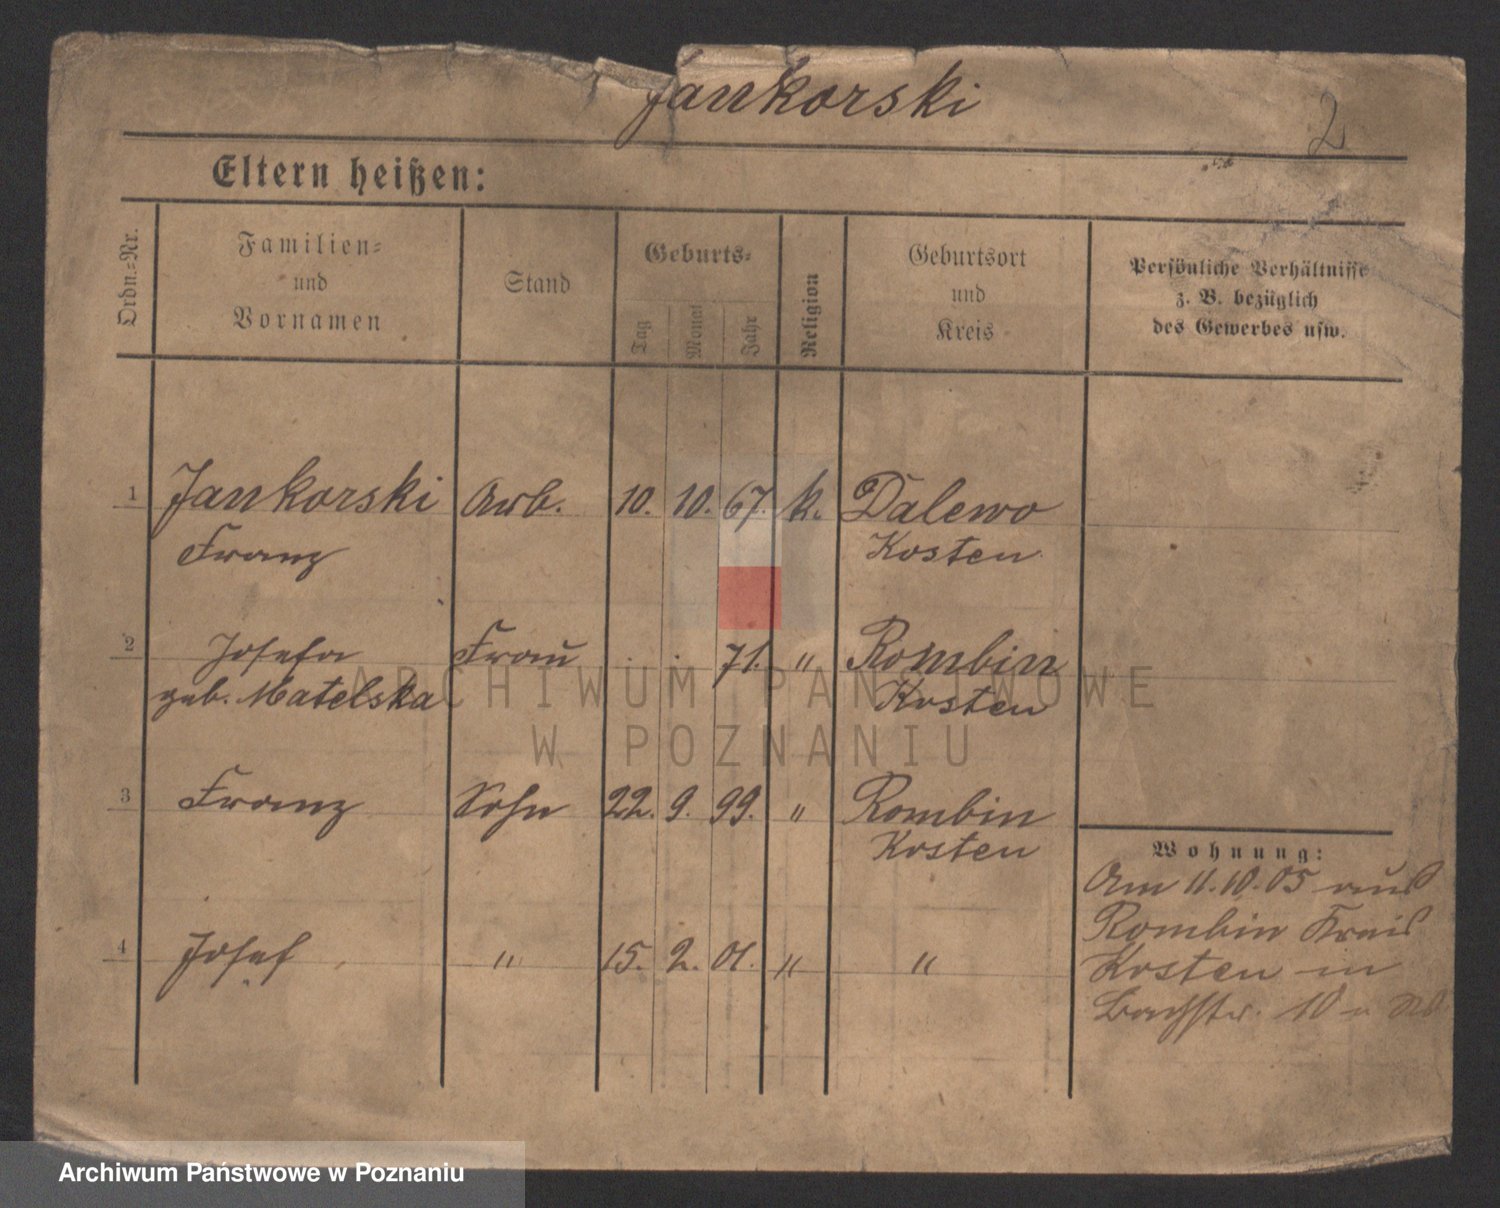 Jankorski
2
Eltern heißen:
Ordn.=Nr.
Familien=
und
Vornamen
Stand
Geburts=
Tag
Monat
Jahr
Religion
Geburtsort
und
Kreis
Persönliche Verhältnisse
z. B. bezüglich
des Gewerbes usw.
1 Jankorski Arb. 10. 10. 67. k. Dalewo
Franz Kosten
2 Josefa Frau 71. " Rombin
geb. Matelska Kosten
3 Franz Sohn 22. 9. 99. " Rombin
Kosten
4 Josef " 15. 2. 01. " "
Wohnung:
Am 11.10.05 aus
Rombin Kreis
Kosten in
Bachstr. 10
ARCHIWUM PAŃSTWOWE
W POZNANIU
Archiwum Państwowe w Poznaniu